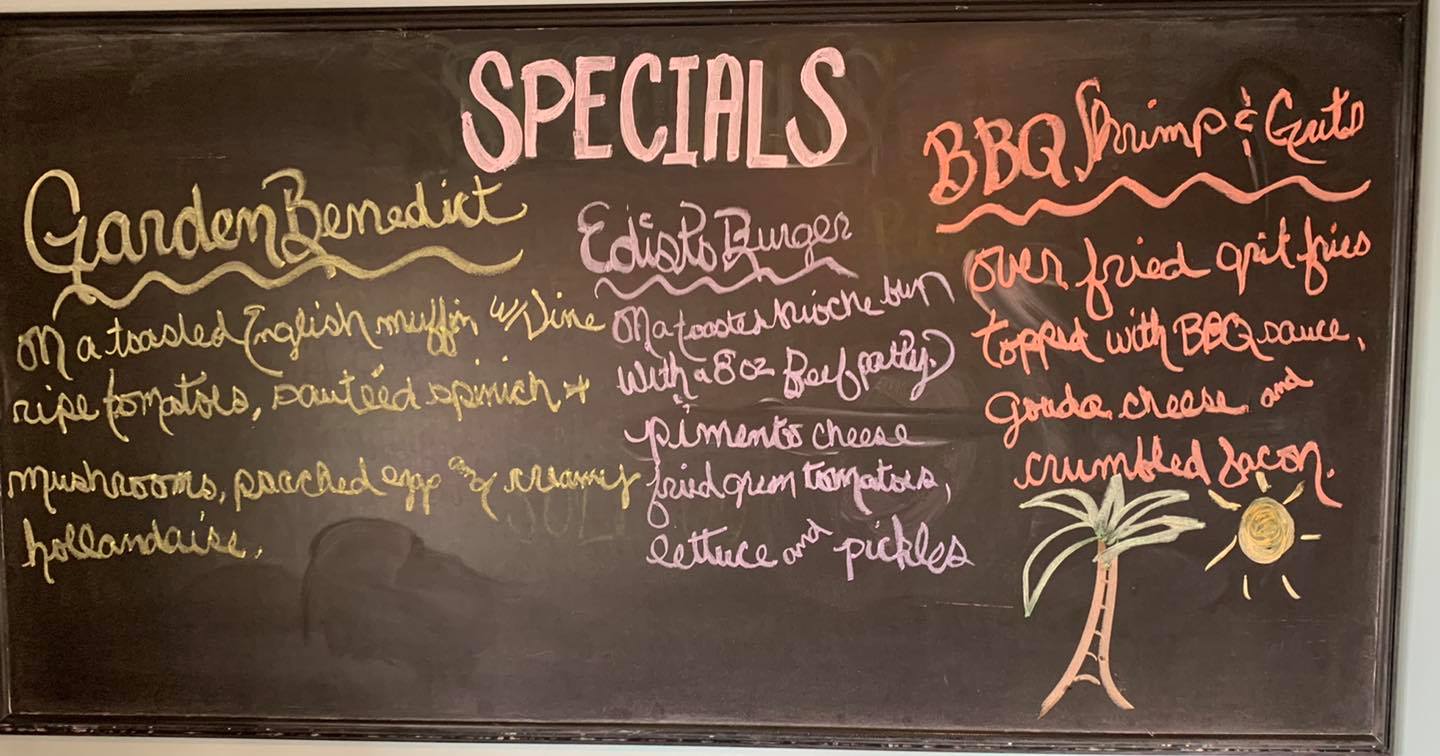 SPECIALS
Garden Benedict
on a toasted English muffin w/ Vine
ripe tomatoes, sautéed spinich +
mushrooms, poached egg and creamy
hollandaise.
Edisto Burger
on a toasted brioche bun
with a 8 oz Beef patty,
pimento cheese
fried green tomatoes,
lettuce and pickles
BBQ Shrimp & Grits
over fried grit fries
topped with BBQ sauce,
gouda cheese and
crumbled bacon.